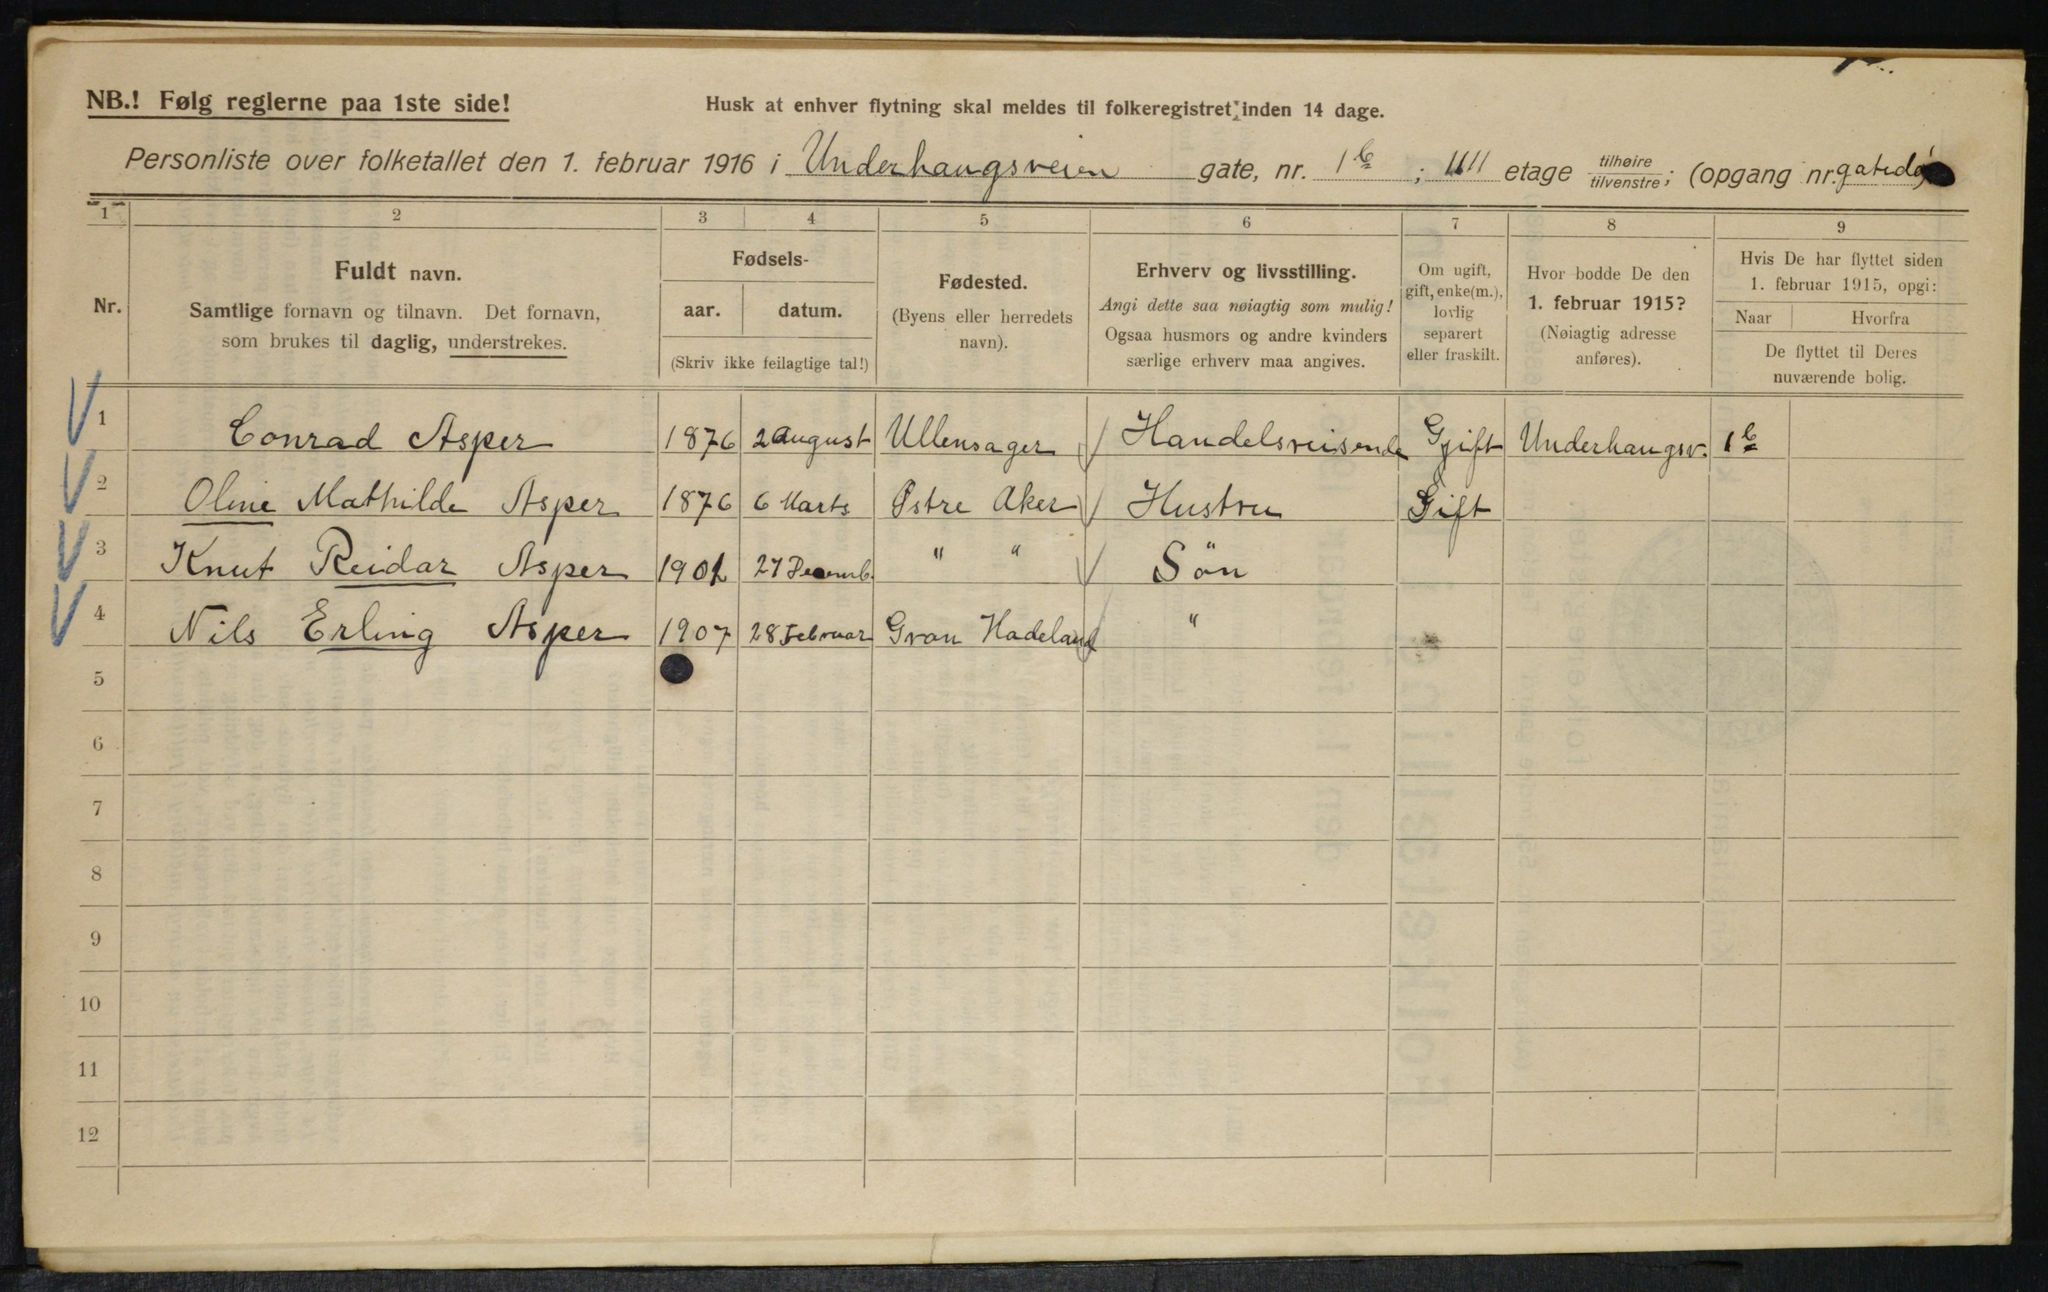 NB.! Følg reglerne paa 1ste side!
Husk at enhver flytning skal meldes til folkeregistret inden 14 dage.
Personliste over folketallet den 1. februar 1916 i Underhaugsveien gate, nr. 1 b ; III etage tilhøire / tilvenstre ; (opgang nr.
1 2 3 4 5 6 7 8 9
Nr.
Fuldt navn.
Samtlige fornavn og tilnavn. Det fornavn,
som brukes til daglig, understrekes.
Fødsels-
aar. datum.
(Skriv ikke feilagtige tal!)
Fødested.
(Byens eller herredets
navn).
Erhverv og livsstilling.
Angi dette saa nøiagtig som mulig!
Ogsaa husmors og andre kvinders
særlige erhverv maa angives.
Om ugift,
gift, enke(m.),
lovlig
separert
eller fraskilt.
Hvor bodde De den
1. februar 1915?
(Nøiagtig adresse
anføres).
Hvis De har flyttet siden
1. februar 1915, opgi:
Naar Hvorfra
De flyttet til Deres
nuværende bolig.
1 Conrad Asper 1876 2 august Ullensager Handelsreisende Gift Underhaugsv. 1 b
2 Oline Mathilde Asper 1876 6 Marts Østre Aker Hustru Gift
3 Knut Reidar Asper 1901 27 Decemb. " " Sön
4 Nils Erling Asper 1907 28 Februar Gran Hadeland "
5
6
7
8
9
10
11
12